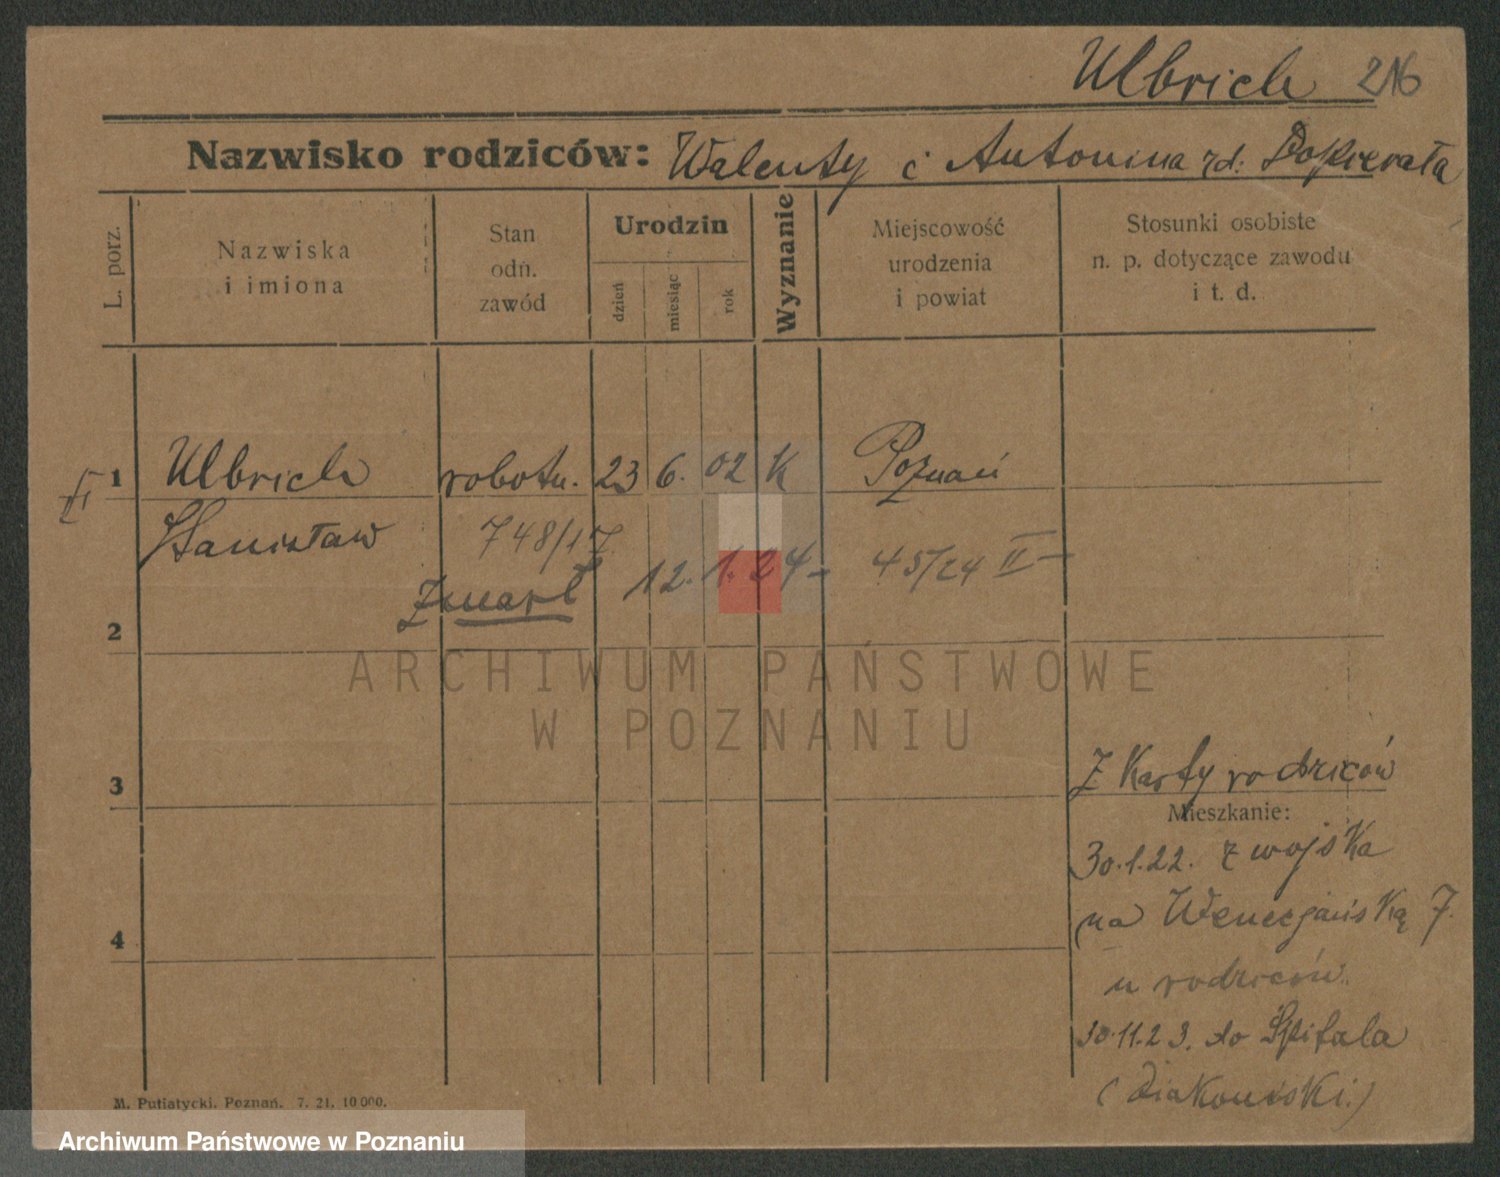 Ulbrich 216
Nazwisko rodziców: Walenty i Antonina rd: Dopierała
L. porz.
Nazwiska
i imiona
Stan
odn.
zawód
Urodzin
dzień
miesiąc
rok
Wyznanie
Miejscowość
urodzenia
i powiat
Stosunki osobiste
n. p. dotyczące zawodu
i t. d.
II 1 Ulbrich robotn. 23 6. 02 K Poznań
Stanisław 748/17
Zmarł 12. 1. 24 - 45/24 II -
2
3
Z Karty rodziców
Mieszkanie:
30.1.22. z wojska
na Wenecjańską 7.
u rodziców.
4
30.11.23. do Szpitala
(Diakoniski.)
M. Putiatycki. Poznań. 7. 21. 10 000.
ARCHIWUM PAŃSTWOWE
W POZNANIU
Archiwum Państwowe w Poznaniu